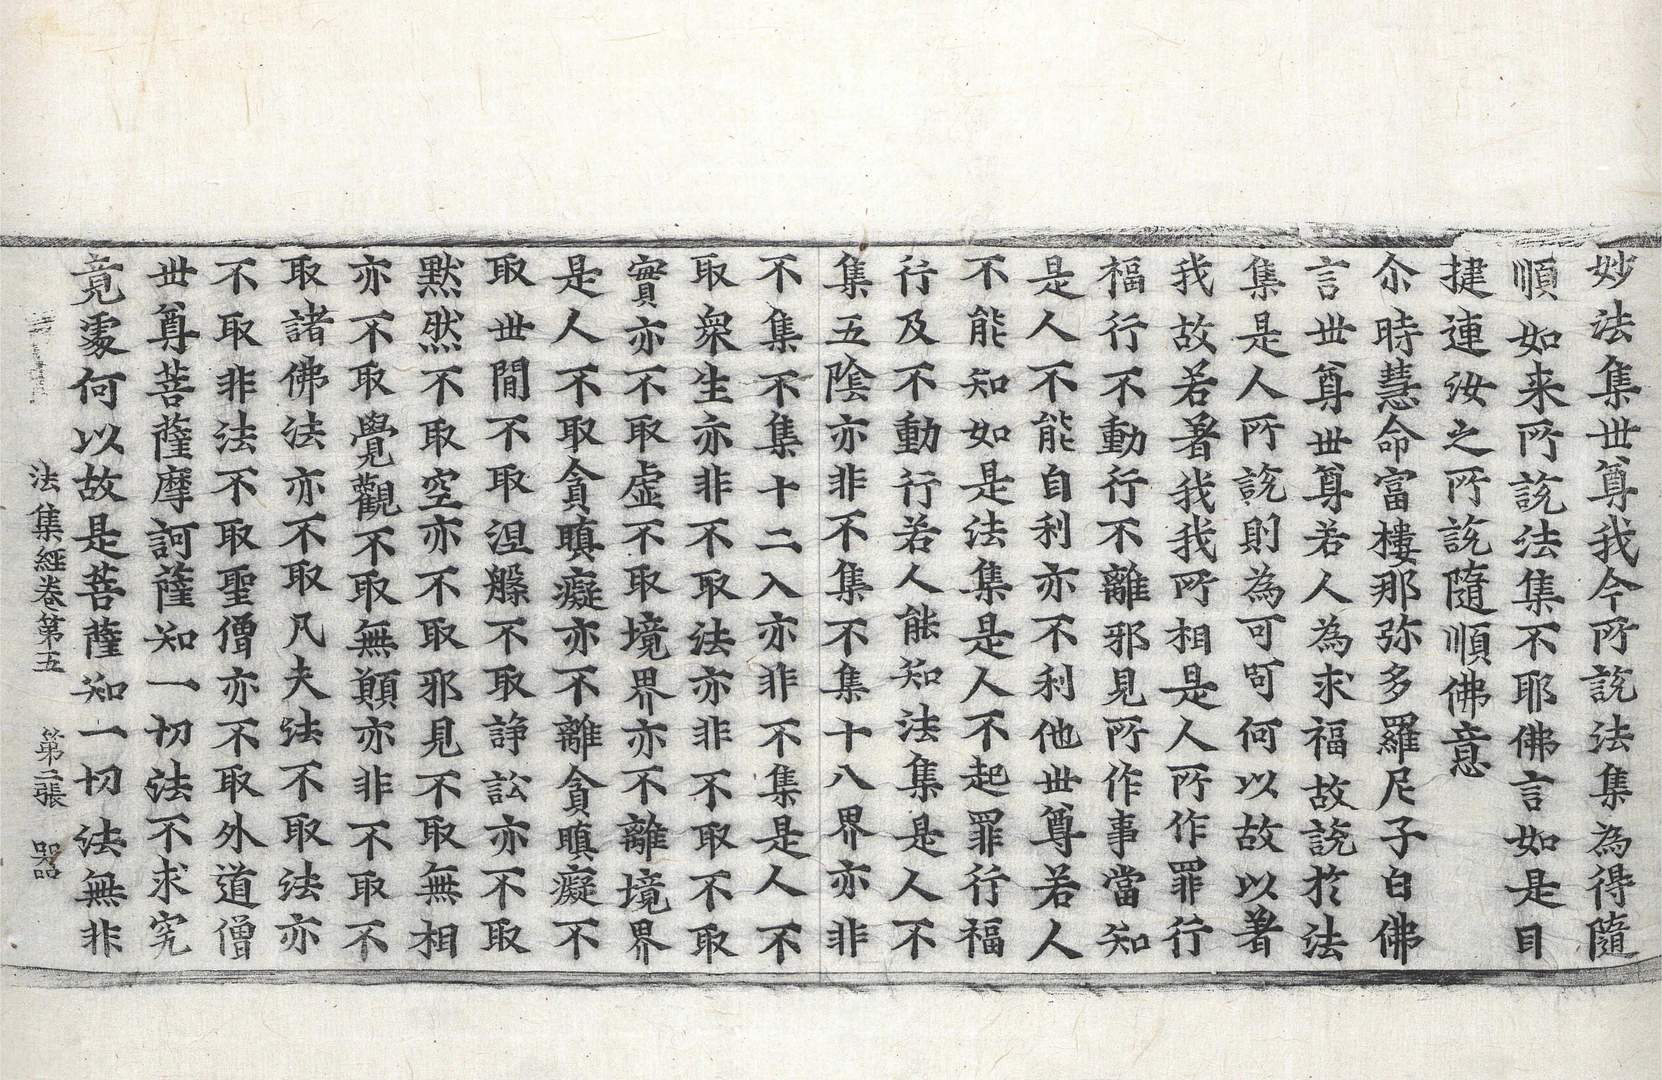 妙法集世尊我今所說法集為得隨
順如来所說法集不耶佛言如是目
揵連汝之所說隨順佛意
尒時慧命富樓那弥多羅尼子白佛
言世尊世尊若人為求福故說扵法
集是人所說則為可呵何以故以著
我故若著我我所相是人所作罪行
福行不動行不離邪見所作事當知
是人不能自利亦不利他世尊若人
不能知如是法集是人不起罪行福
行及不動行若人能知法集是人不
集五陰亦非不集不集十八界亦非
不集不集十二入亦非不集是人不
取衆生亦非不取法亦非不取不取
實亦不取虛不取境界亦不離境界
是人不取貪瞋癡亦不離貪瞋癡不
取世閒不取涅槃不取諍訟亦不取
黙然不取空亦不取邪見不取無相
亦不取覺觀不取無願亦非不取不
取諸佛法亦不取凡夫法不取法亦
不取非法不取聖僧亦不取外道僧
世尊菩薩摩訶薩知一切法不求究
竟處何以故是菩薩知一切法無非
法集經卷第五 第二張 器